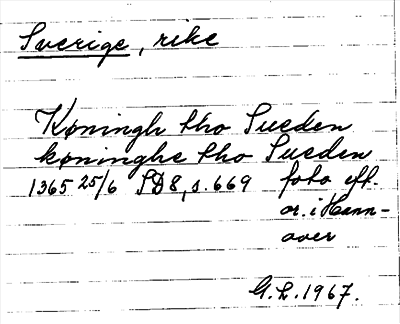 Sverige, rike
Køningh tho Sueden
køninghe tho Sueden
1365 25/6 SD 8, s. 669 foto eft.
or. i Hann-
over
G. L. 1967.